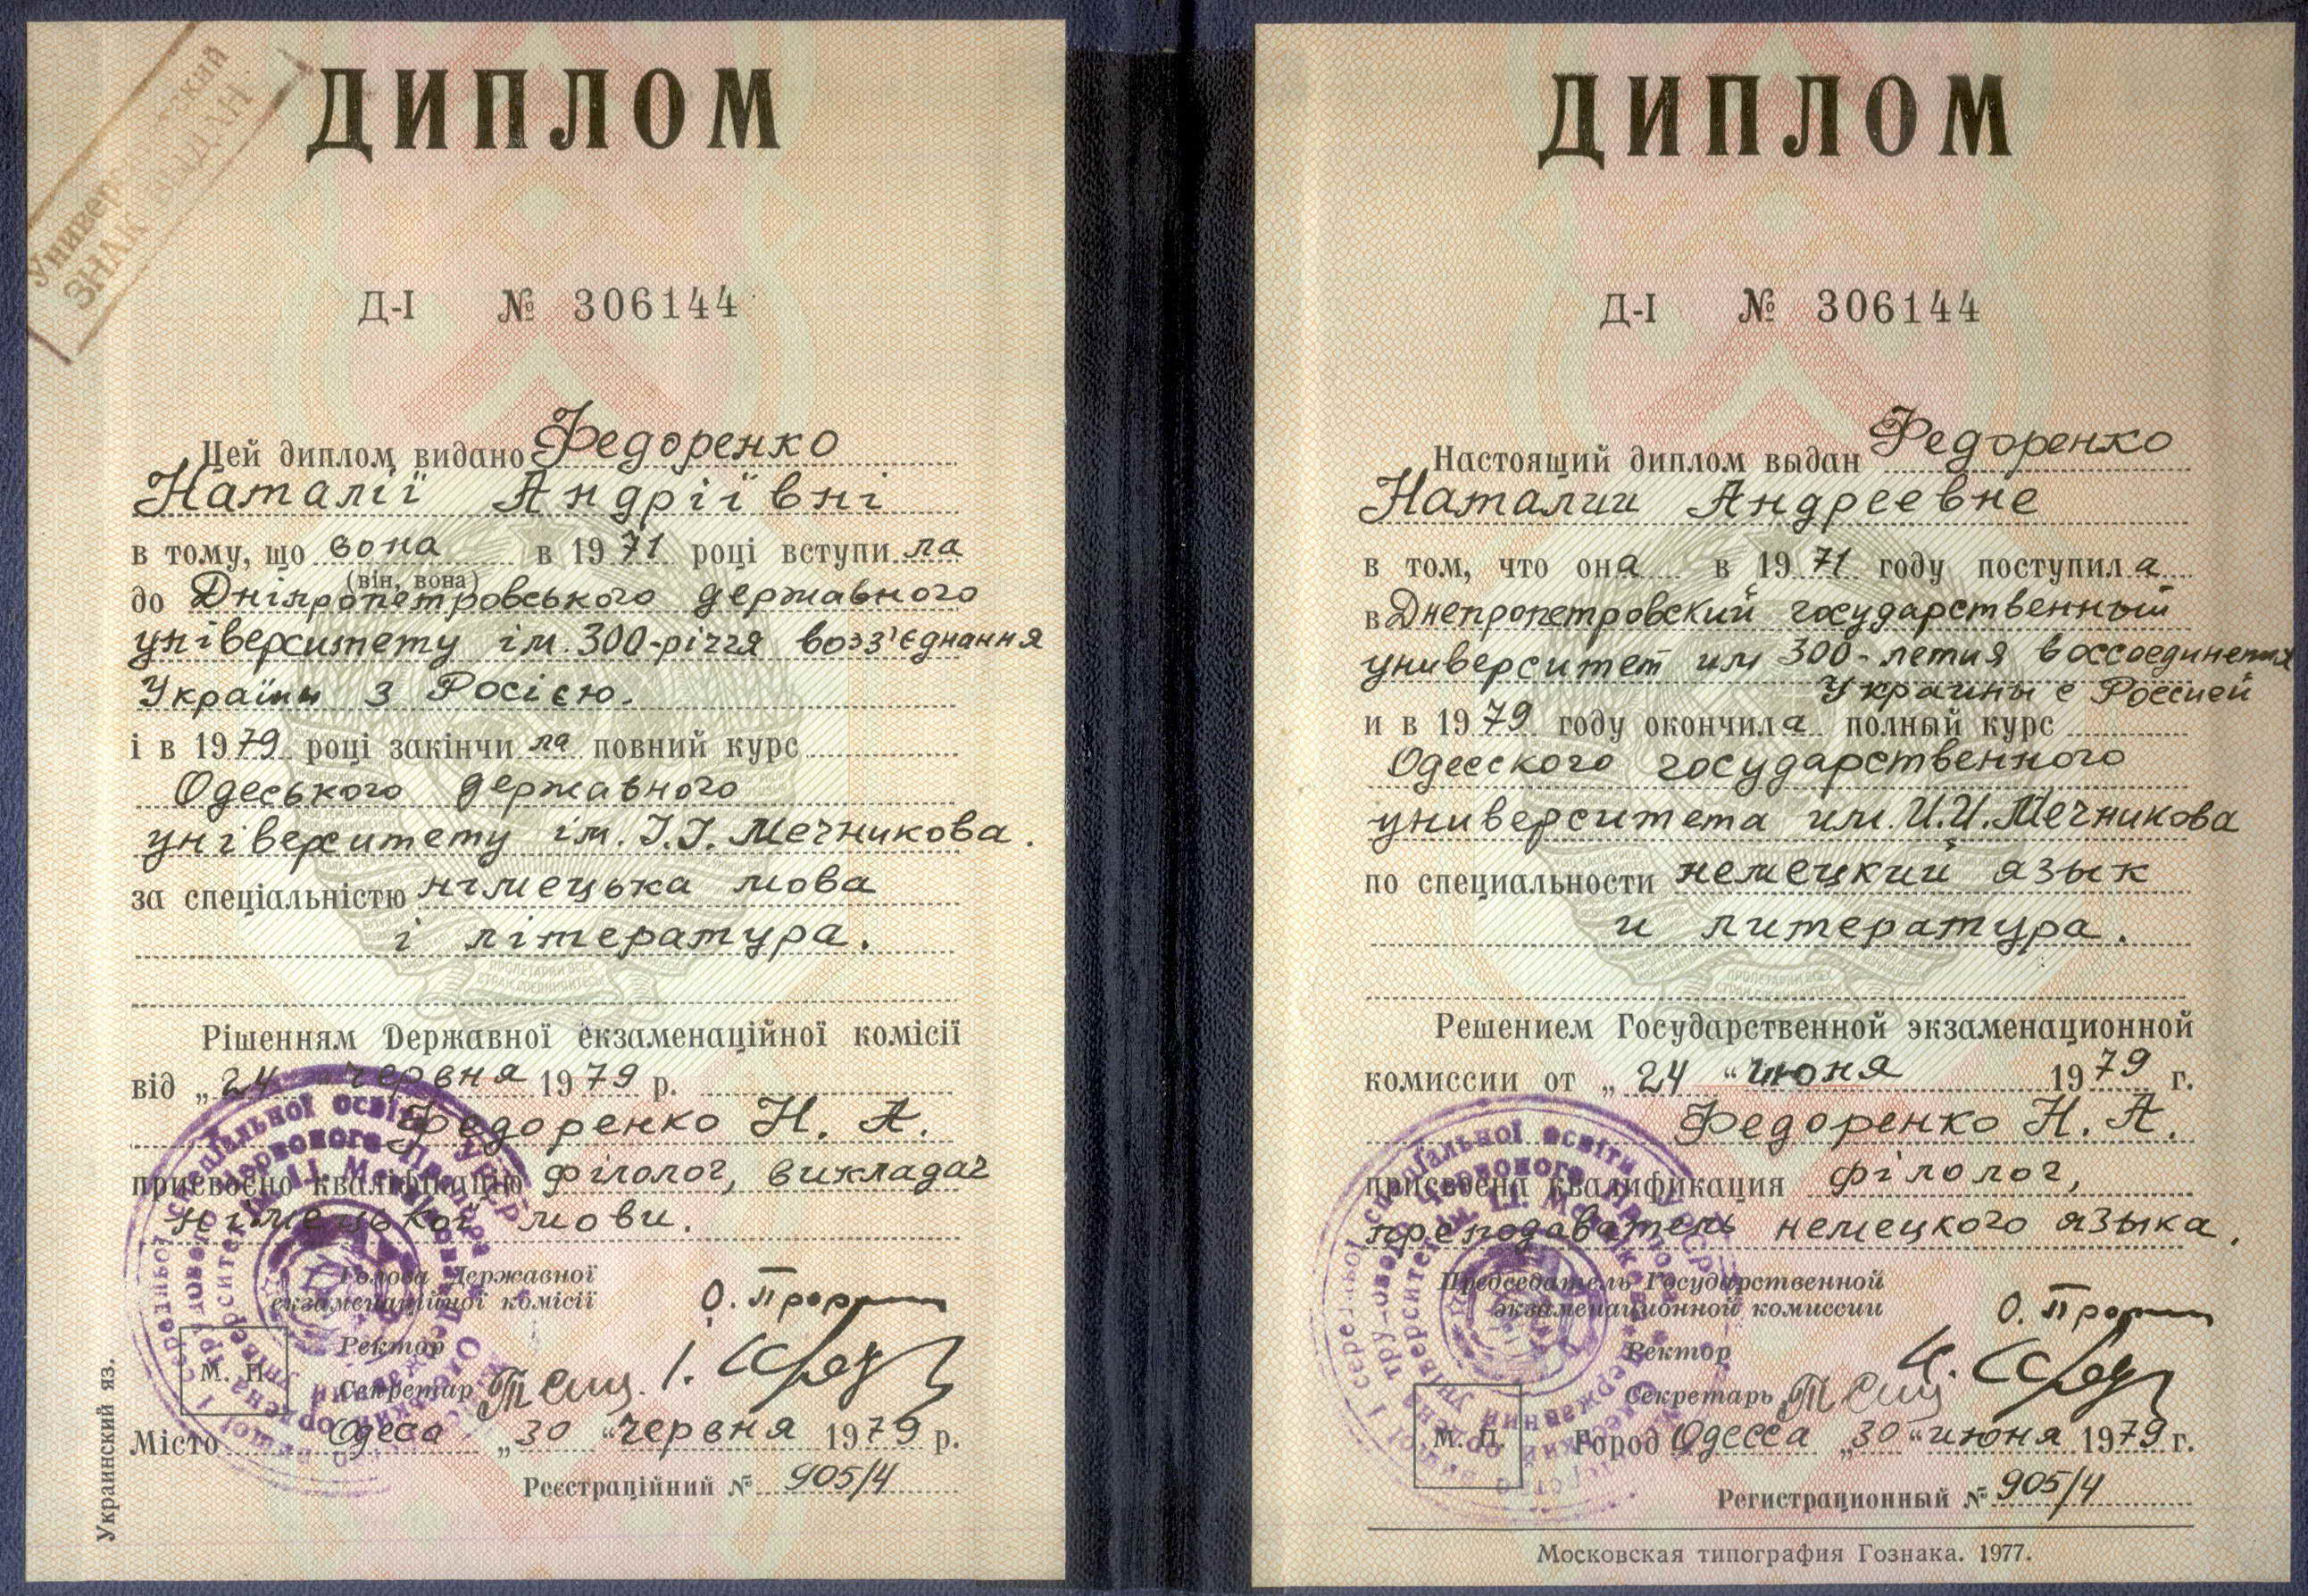 Университетский
ЗНАК ВЫДАН
ДИПЛОМ
Д-I № 306144
Цей диплом видано Федоренко
Наталії Андріївні
в тому, що вона в 1971 році вступила
(він, вона)
до Дніпропетровського державного
університету ім. 300-річчя возз'єднання
України з Росією.
і в 1979 році закінчила повний курс
Одеського державного
університету ім. І.І. Мечникова.
за спеціальністю німецька мова
і література.
Рішенням Державної екзаменаційної комісії
від „24" червня 1979 р.
Федоренко Н. А.
присвоєно кваліфікацію філолог, викладач
німецької мови.
Голова Державної
екзаменаційної комісії
Ректор
М. П.
Секретар
Місто Одеса „30" червня 1979 р.
Реєстраційний № 905/4
Украинский яз.
ДИПЛОМ
Д-I № 306144
Настоящий диплом выдан Федоренко
Наталии Андреевне
в том, что она в 1971 году поступила
в Днепропетровский государственный
университет им 300-летия воссоединения
Украины с Россией
и в 1979 году окончила полный курс
Одесского государственного
университета им. И.И. Мечникова
по специальности немецкий язык
и литература.
Решением Государственной экзаменационной
комиссии от „24" июня 1979 г.
Федоренко Н. А.
присвоена квалификация філолог,
преподаватель немецкого языка.
Председатель Государственной
экзаменационной комиссии
Ректор
Секретарь
М. П.
Город Одесса „30" июня 1979 г.
Регистрационный № 905/4
Московская типография Гознака. 1977.